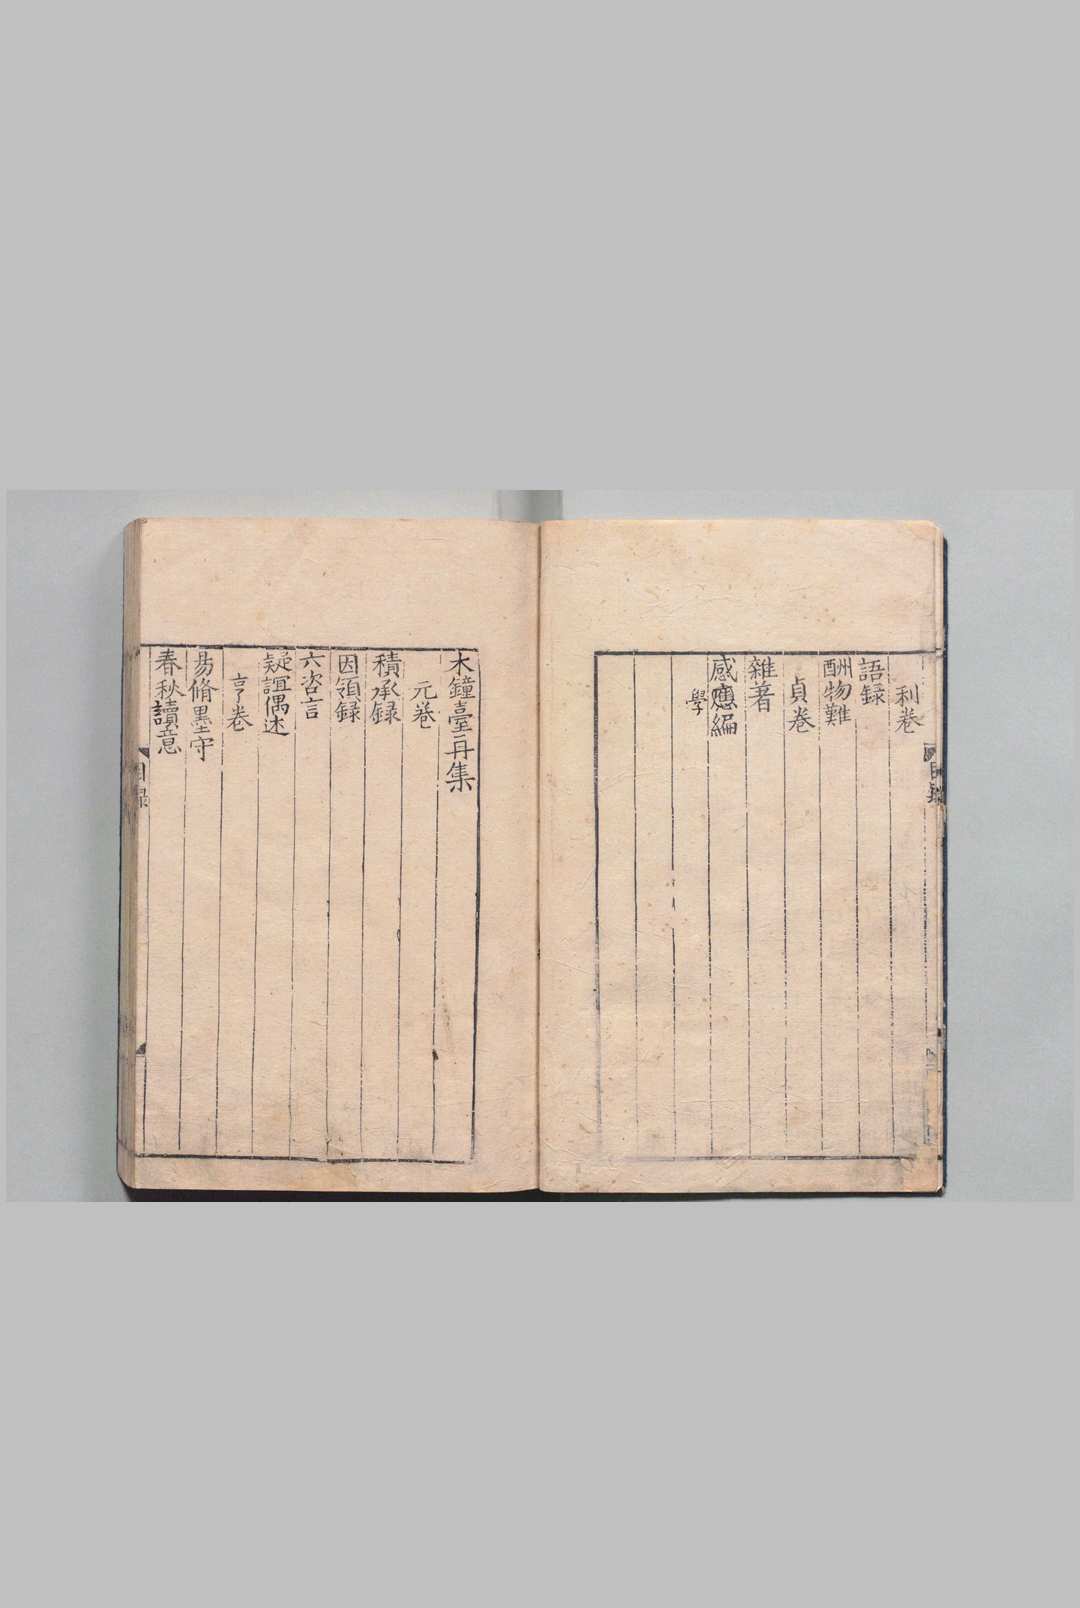 利卷
語録
酬物難
貞卷
雜著
感應編
學
木鐘臺再集
元卷
積承録
因領録
六咨言
疑誼偶述
亨卷
易脩墨守
春秋讀意
目録